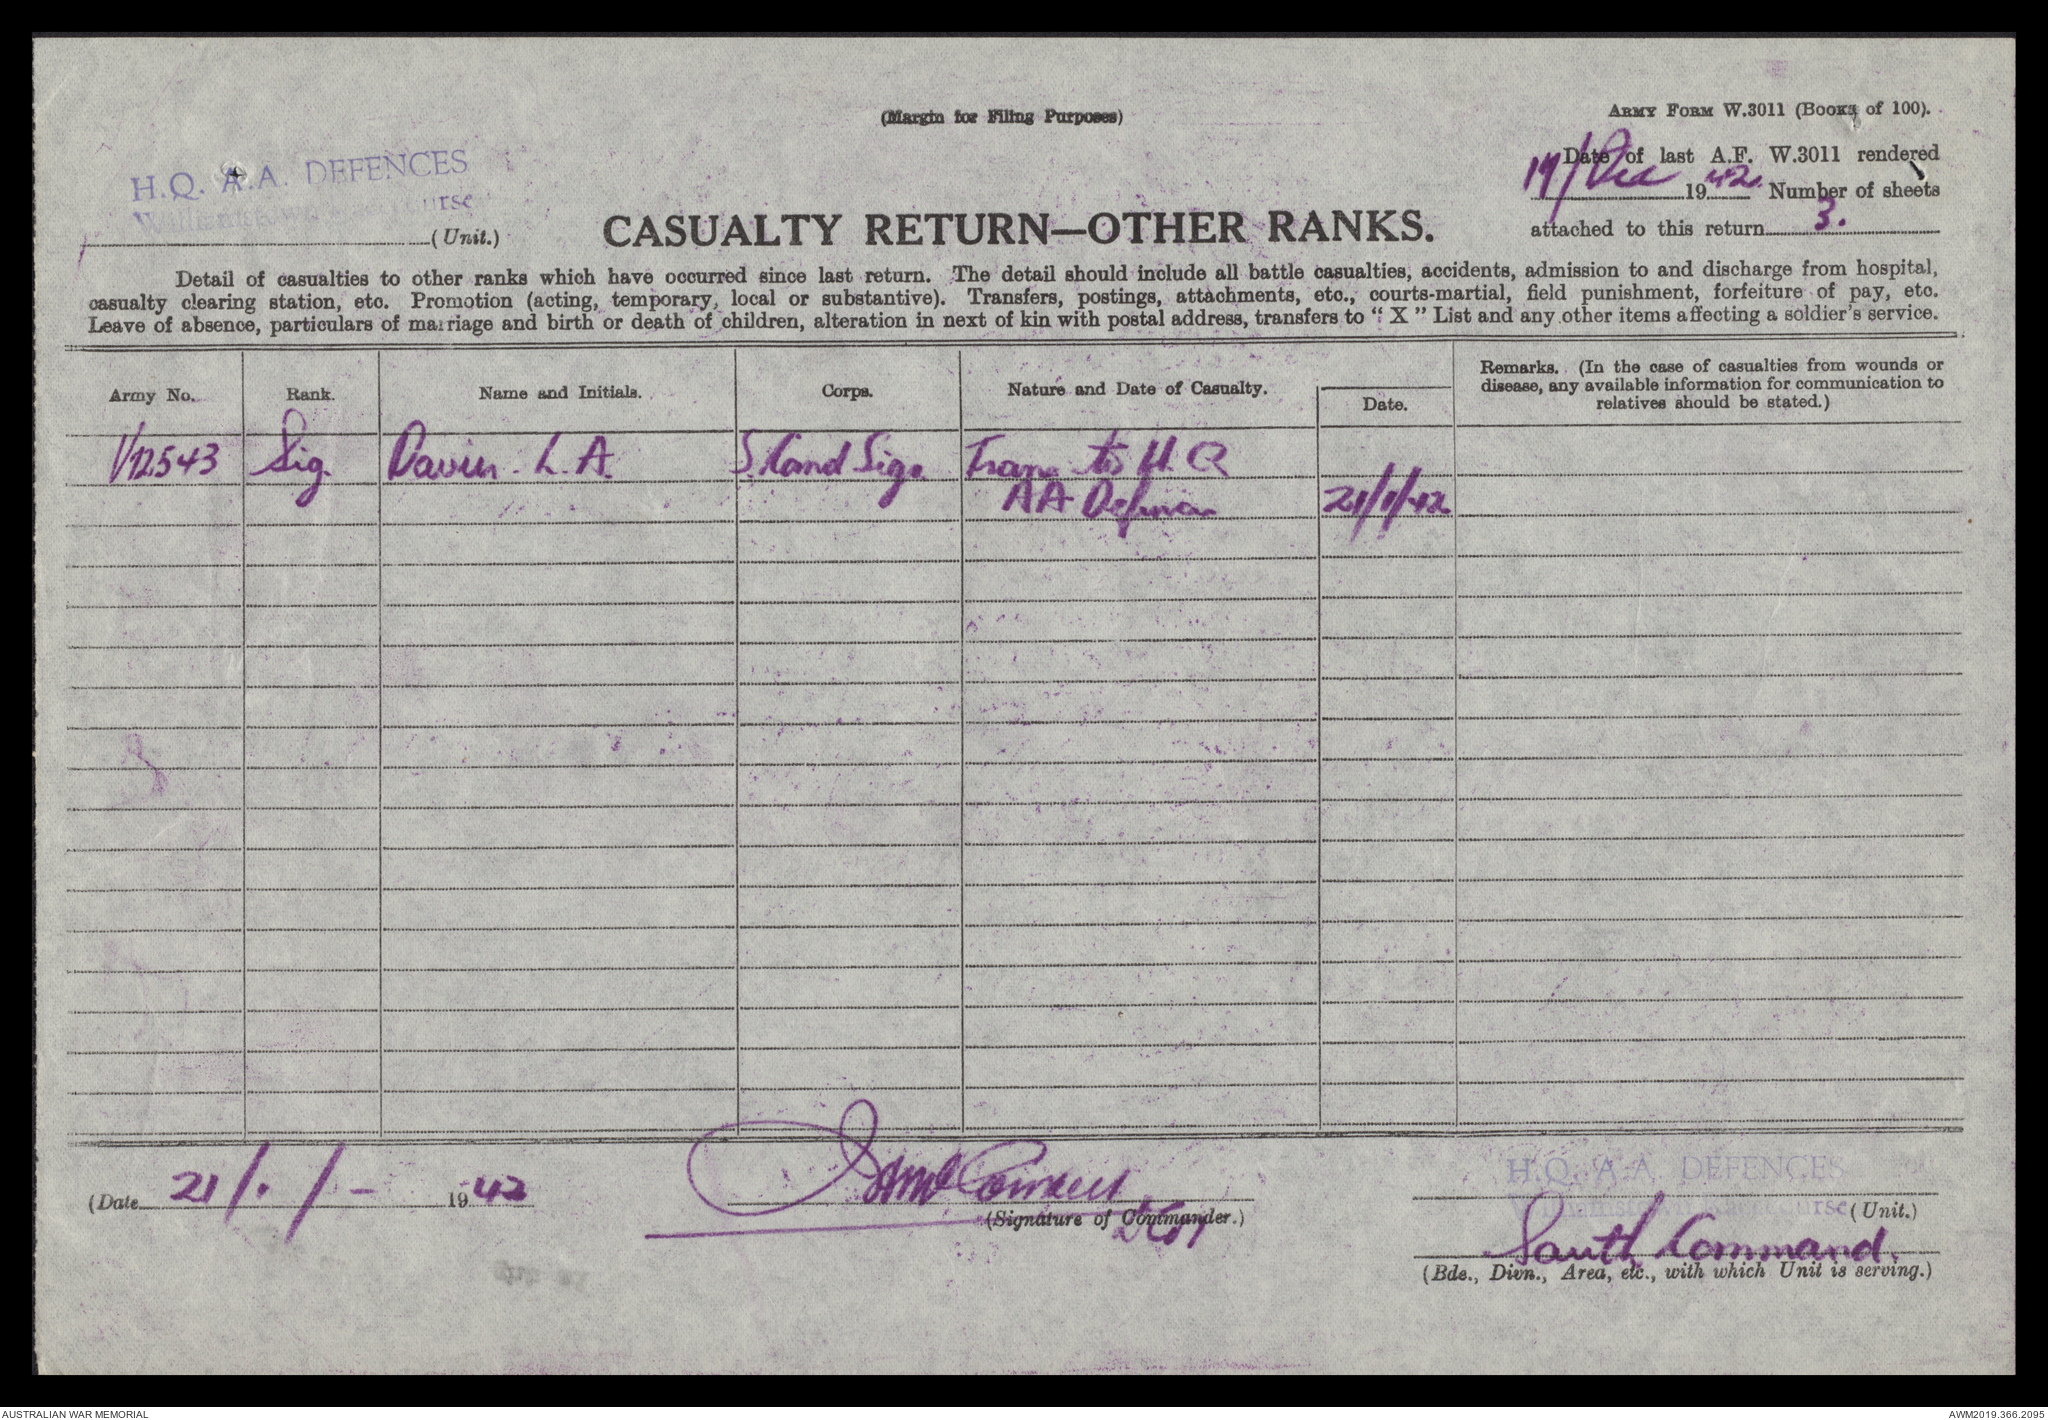 (Margin for Filing Purposes)
ARMY FORM W.3011 (Books of 100).
H.Q. A.A. DEFENCES
Williamstown Racecourse
(Unit.)
Date of last A.F. W.3011 rendered
19/Dec 1942. Number of sheets
attached to this return 3.
CASUALTY RETURN—OTHER RANKS.
Detail of casualties to other ranks which have occurred since last return. The detail should include all battle casualties, accidents, admission to and discharge from hospital,
casualty clearing station, etc. Promotion (acting, temporary, local or substantive). Transfers, postings, attachments, etc., courts-martial, field punishment, forfeiture of pay, etc.
Leave of absence, particulars of marriage and birth or death of children, alteration in next of kin with postal address, transfers to "X" List and any other items affecting a soldier's service.
Army No. Rank. Name and Initials. Corps. Nature and Date of Casualty. Date. Remarks. (In the case of casualties from wounds or
disease, any available information for communication to
relatives should be stated.)
V12543 Sig. L.A. Sigs Trans to H.Q
AA Defences 21/1/42
(Date 21/1/- 1942
(Signature of Commander.)
H.Q. A.A. DEFENCES
Williamstown Racecourse (Unit.)
South Command.
(Bde., Divn., Area, etc., with which Unit is serving.)
AUSTRALIAN WAR MEMORIAL
AWM2019.366.2095